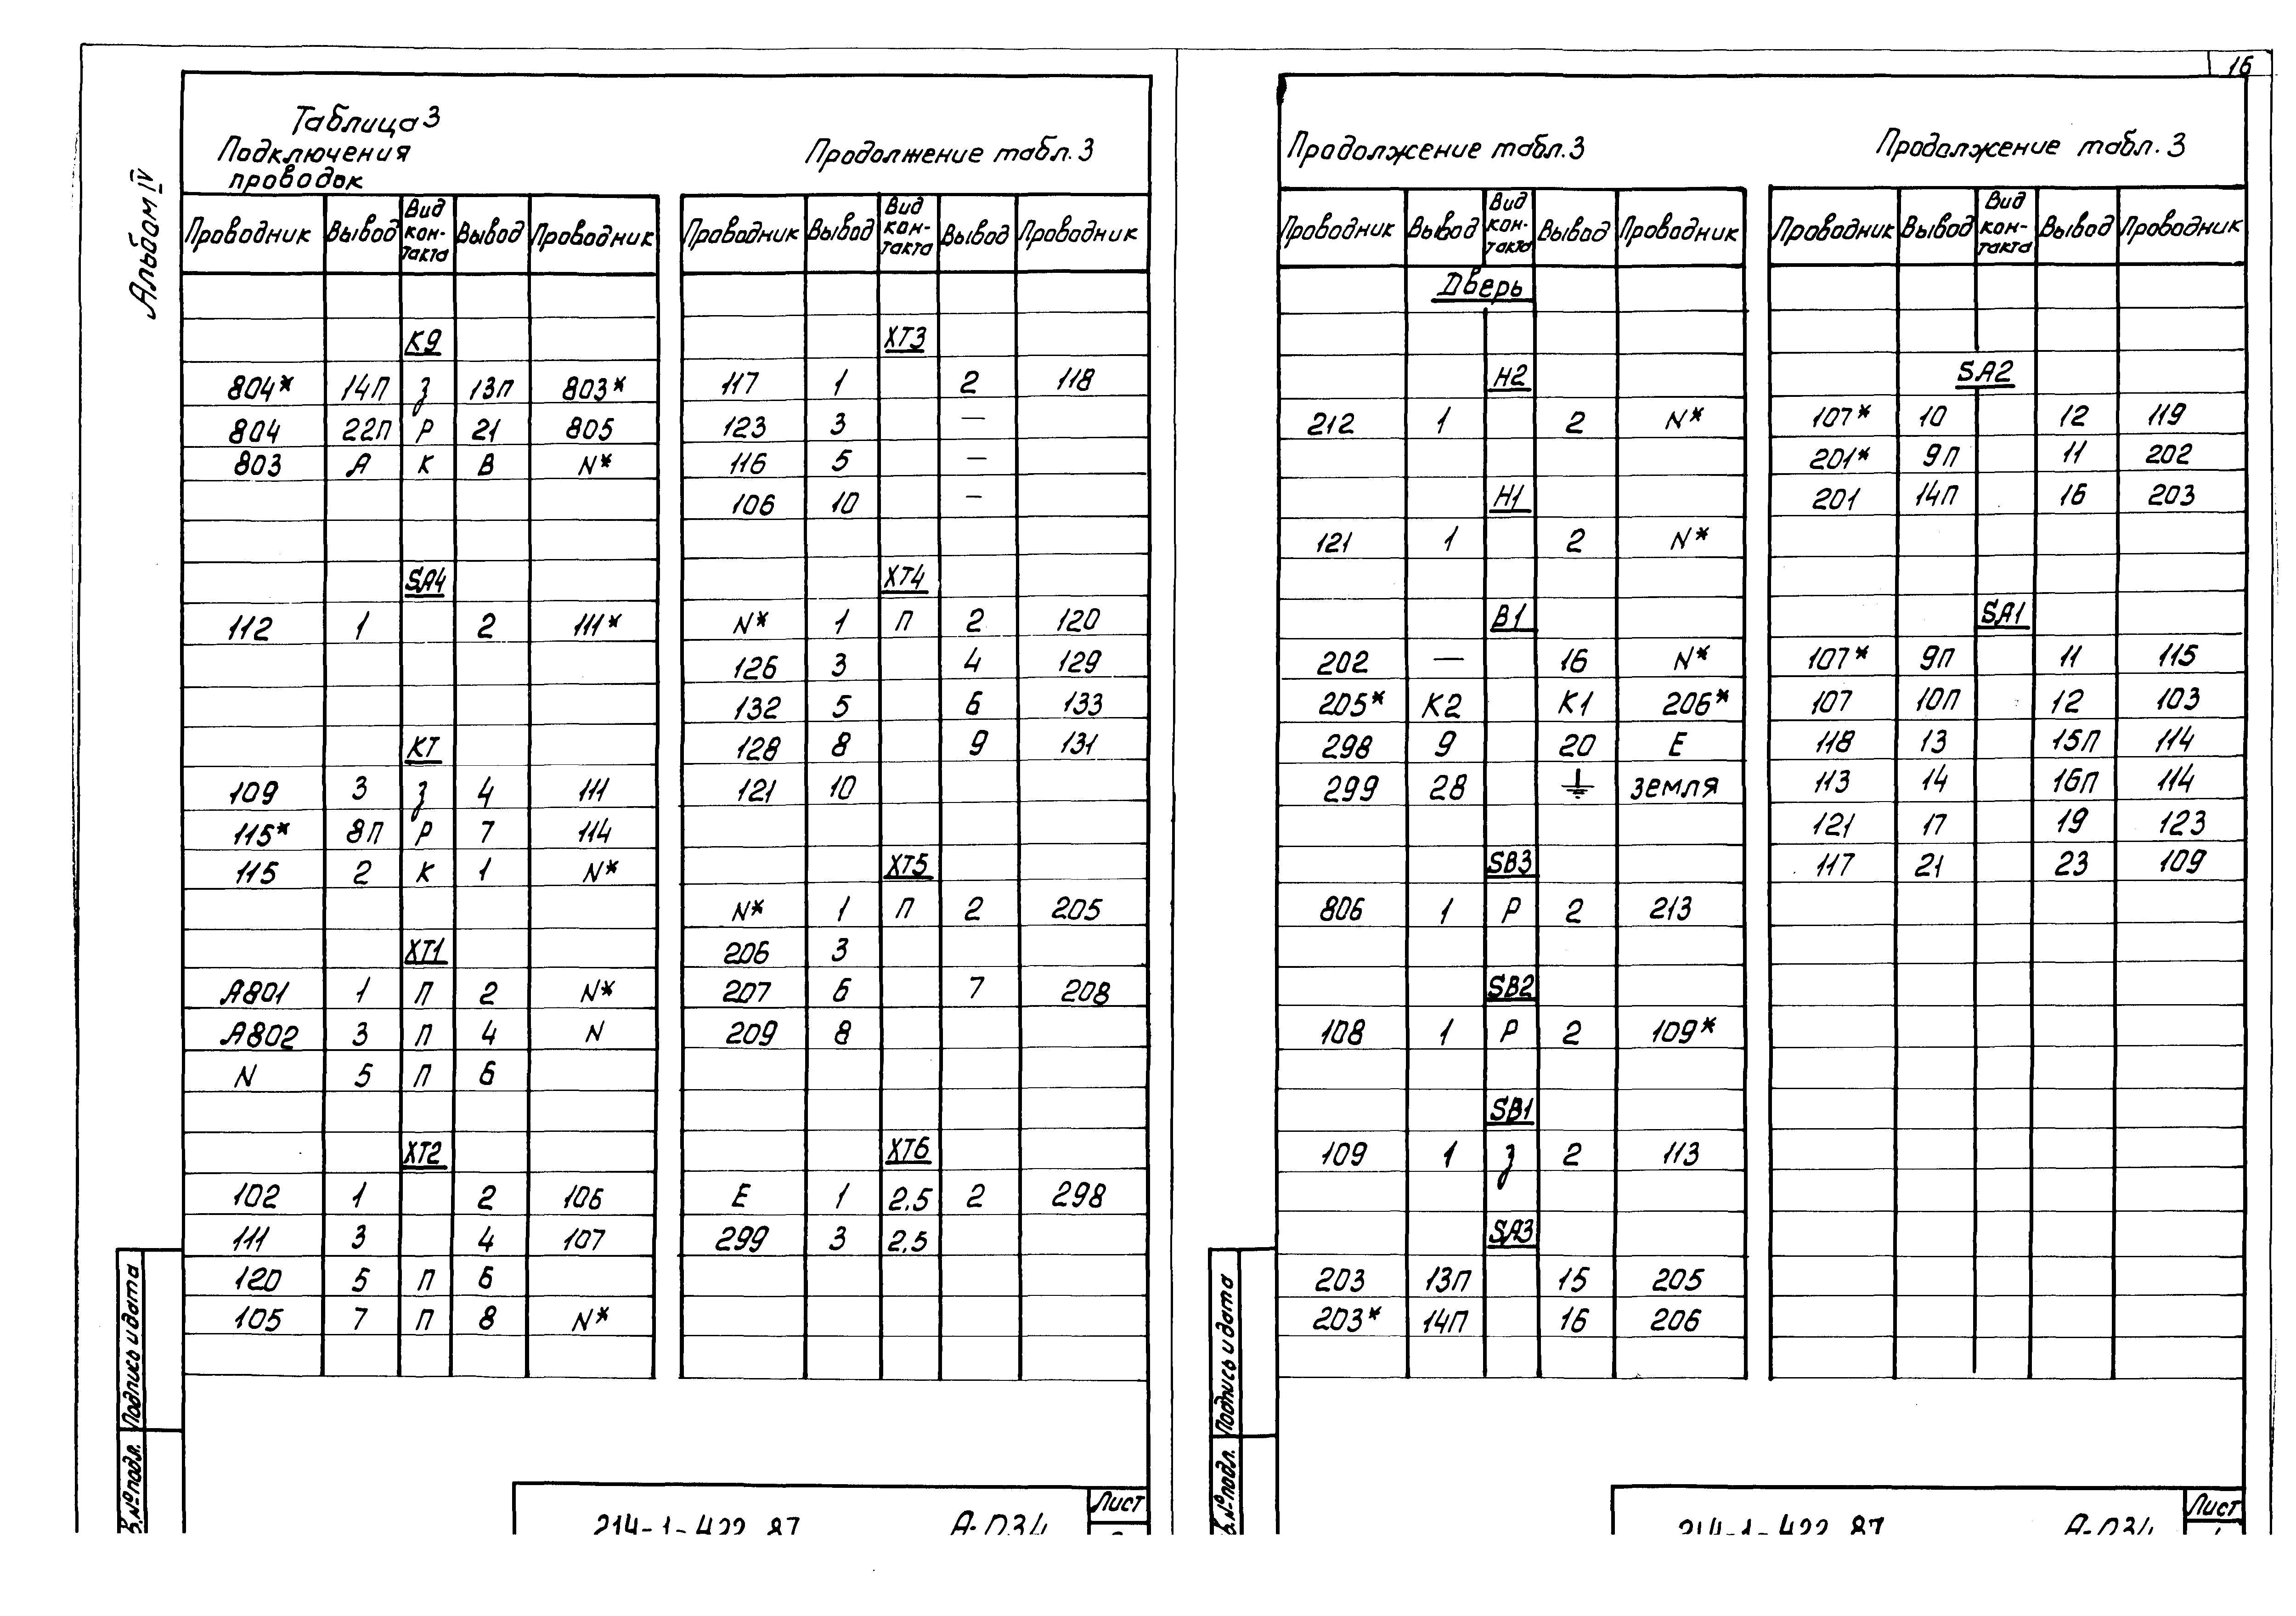 16
Альбом IV
Таблица 3
Подключения
проводок
Проводник Вывод Вид кон-такта Вывод Проводник
К9
804* 14П З 13П 803*
804 22П Р 21 805
803 А К В N*
SA4
112 1 2 111*
КТ
109 3 З 4 111
115* 8П Р 7 114
115 2 К 1 N*
ХТ1
А801 1 П 2 N*
А802 3 П 4 N
N 5 П 6
ХТ2
102 1 2 106
111 3 4 107
120 5 П 6
105 7 П 8 N*
Продолжение табл. 3
Проводник Вывод Вид кон-такта Вывод Проводник
ХТ3
117 1 2 118
123 3 —
116 5 —
106 10 —
ХТ4
N* 1 П 2 120
126 3 4 129
132 5 6 133
128 8 9 131
121 10
ХТ5
N* 1 П 2 205
206 3
207 6 7 208
209 8
ХТ6
Е 1 2,5 2 298
299 3 2,5
Подпись и дата
№ подл.
Лист
214-1-422.87 А-034
Продолжение табл. 3
Проводник Вывод Вид кон-такта Вывод Проводник
Дверь
Н2
212 1 2 N*
Н1
121 1 2 N*
В1
202 — 16 N*
205* К2 К1 206*
298 9 20 Е
299 28 ⏚ земля
SB3
806 1 Р 2 213
SB2
108 1 Р 2 109*
SB1
109 1 З 2 113
SA3
203 13П 15 205
203* 14П 16 206
Продолжение табл. 3
Проводник Вывод Вид кон-такта Вывод Проводник
SA2
107* 10 12 119
201* 9П 11 202
201 14П 16 203
SA1
107* 9П 11 115
107 10П 12 103
118 13 15П 114
113 14 16П 114
121 17 19 123
117 21 23 109
Подпись и дата
№ подл.
Лист
214-1-422.87 А-034